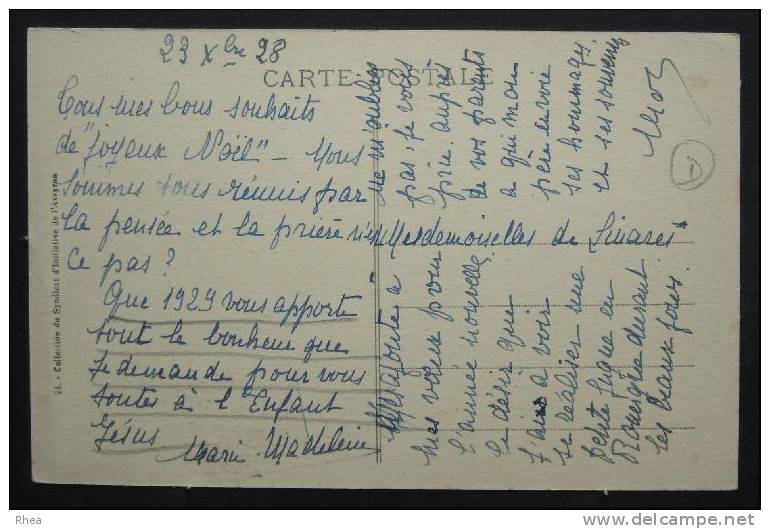 23 Xbre 28
CARTE POSTALE
Tous mes bons souhaits
de "Joyeux Noël" - Nous
sommes tous réunis par
la pensée et la prière n'est
ce pas?
Que 1929 vous apporte
tout le bonheur que
je demande pour vous
toutes à l'Enfant
Jésus
Marie-Madeleine
Mesdemoiselles de Sinares
J'ajoute à
mes vœux pour
l'année nouvelle
le désir que
j'ai à voir
se réaliser une
petite fugue en
Rouergue durant
les beaux jours.
Ne m'oubliez
pas, je vous
prie, auprès
de vos parents
à qui mon
père envoie
ses hommages,
et ses souvenirs
24. - Collection du Syndicat d'Initiative de l'Aveyron
Rhea
delcampe.net